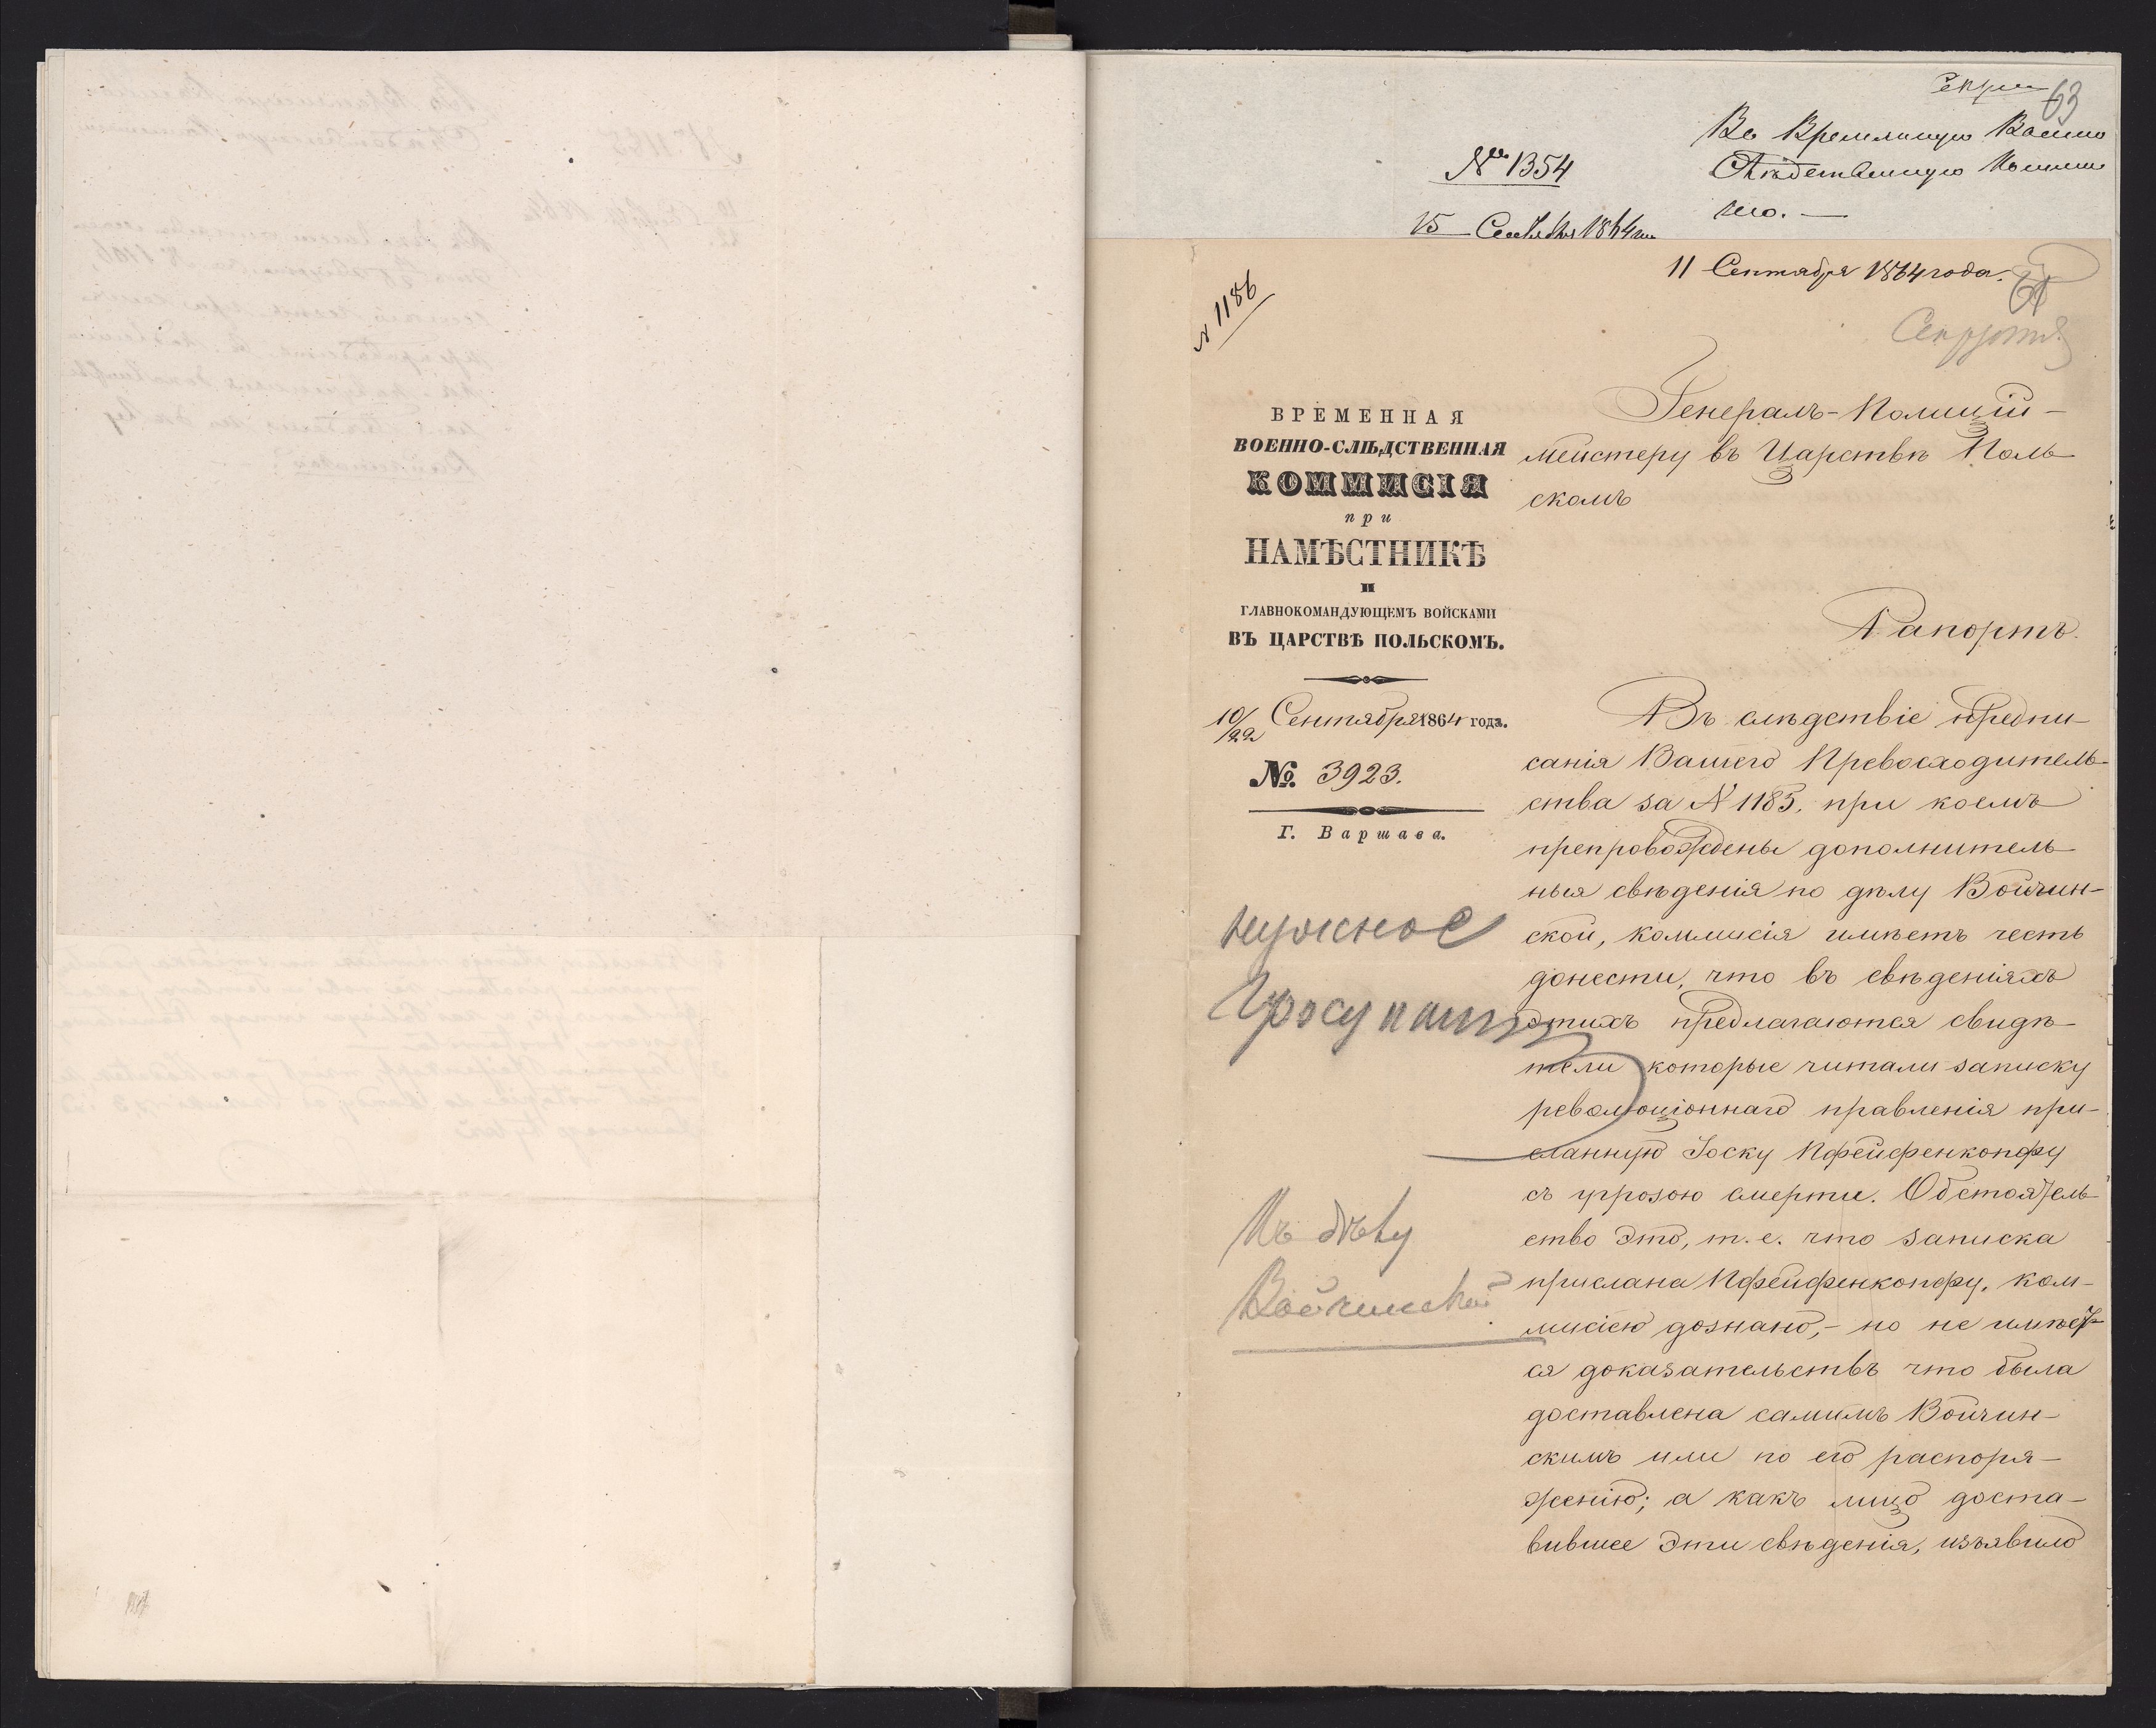 63
Во Временную Военно
Следственную Коммис
сію. —
№ 1354
15 Сентября 1864 г.
11 Сентября 1864 года.
61
N 1186
Секретно
ВРЕМЕННАЯ
ВОЕННО-СЛѢДСТВЕННАЯ
КОММИСІЯ
при
НАМѢСТНИКѢ
И
ГЛАВНОКОМАНДУЮЩЕМЪ ВОЙСКАМИ
ВЪ ЦАРСТВѢ ПОЛЬСКОМЪ.
10/22 Сентября 1864 года.
№. 3923.
Г. Варшава.
нужное
Прошу
Къ дѣлу
Войчинской
Генералъ-Полицій-
мейстеру въ Царствѣ Поль
скомъ
Рапортъ.
Въ слѣдствіе предпи-
санія Вашего Превосходитель-
ства за N 1185, при коемъ
препровождены дополнитель-
ныя свѣденія по дѣлу Войчин-
ской, коммисія имѣетъ честь
донести, что въ свѣденіяхъ
этихъ предлагаются свидѣ-
тели которые читали записку
революціоннаго правленія при-
сланную Іоску Пфейфенкопфу
съ угрозою смерти. Обстоятель
ство это, т. е. что записка
прислана Пфейфенкопфу, ком-
мисіею дознано, - но не имѣет-
ся доказательствъ что была
доставлена самимъ Войчин-
скимъ или по его распоря-
женію; а какъ лицо доста-
вившее эти свѣденія, изъявило